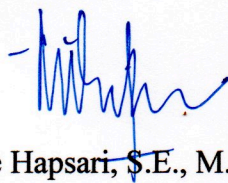 e Hapsari, S.E., M.